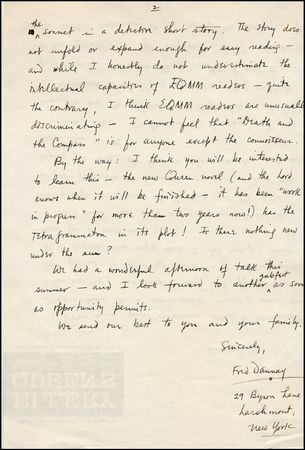 2
the
sonnet in a detective short story. The story does
not unfold or expand enough for easy reading —
and while I honestly do not underestimate the
intellectual capacities of EQMM readers — quite
the contrary, I think EQMM readers are unusually
discriminating — I cannot feel that "Death and
the Compass" is for anyone except the connoisseur.
By the way: I think you will be interested
to learn this — the new Queen novel (and the Lord
knows when it will be finished — it has been "work
in progress" for more than two years now!) has the
Tetragrammaton in its plot! Is there nothing new
under the sun?
We had a wonderful afternoon of talk this
summer — and I look forward to another gabfest as soon
as opportunity permits.
We send our best to you and your family.
Sincerely,
Fred Dannay
29 Byron Lane
Larchmont,
New York
QUEENS
ELLERY